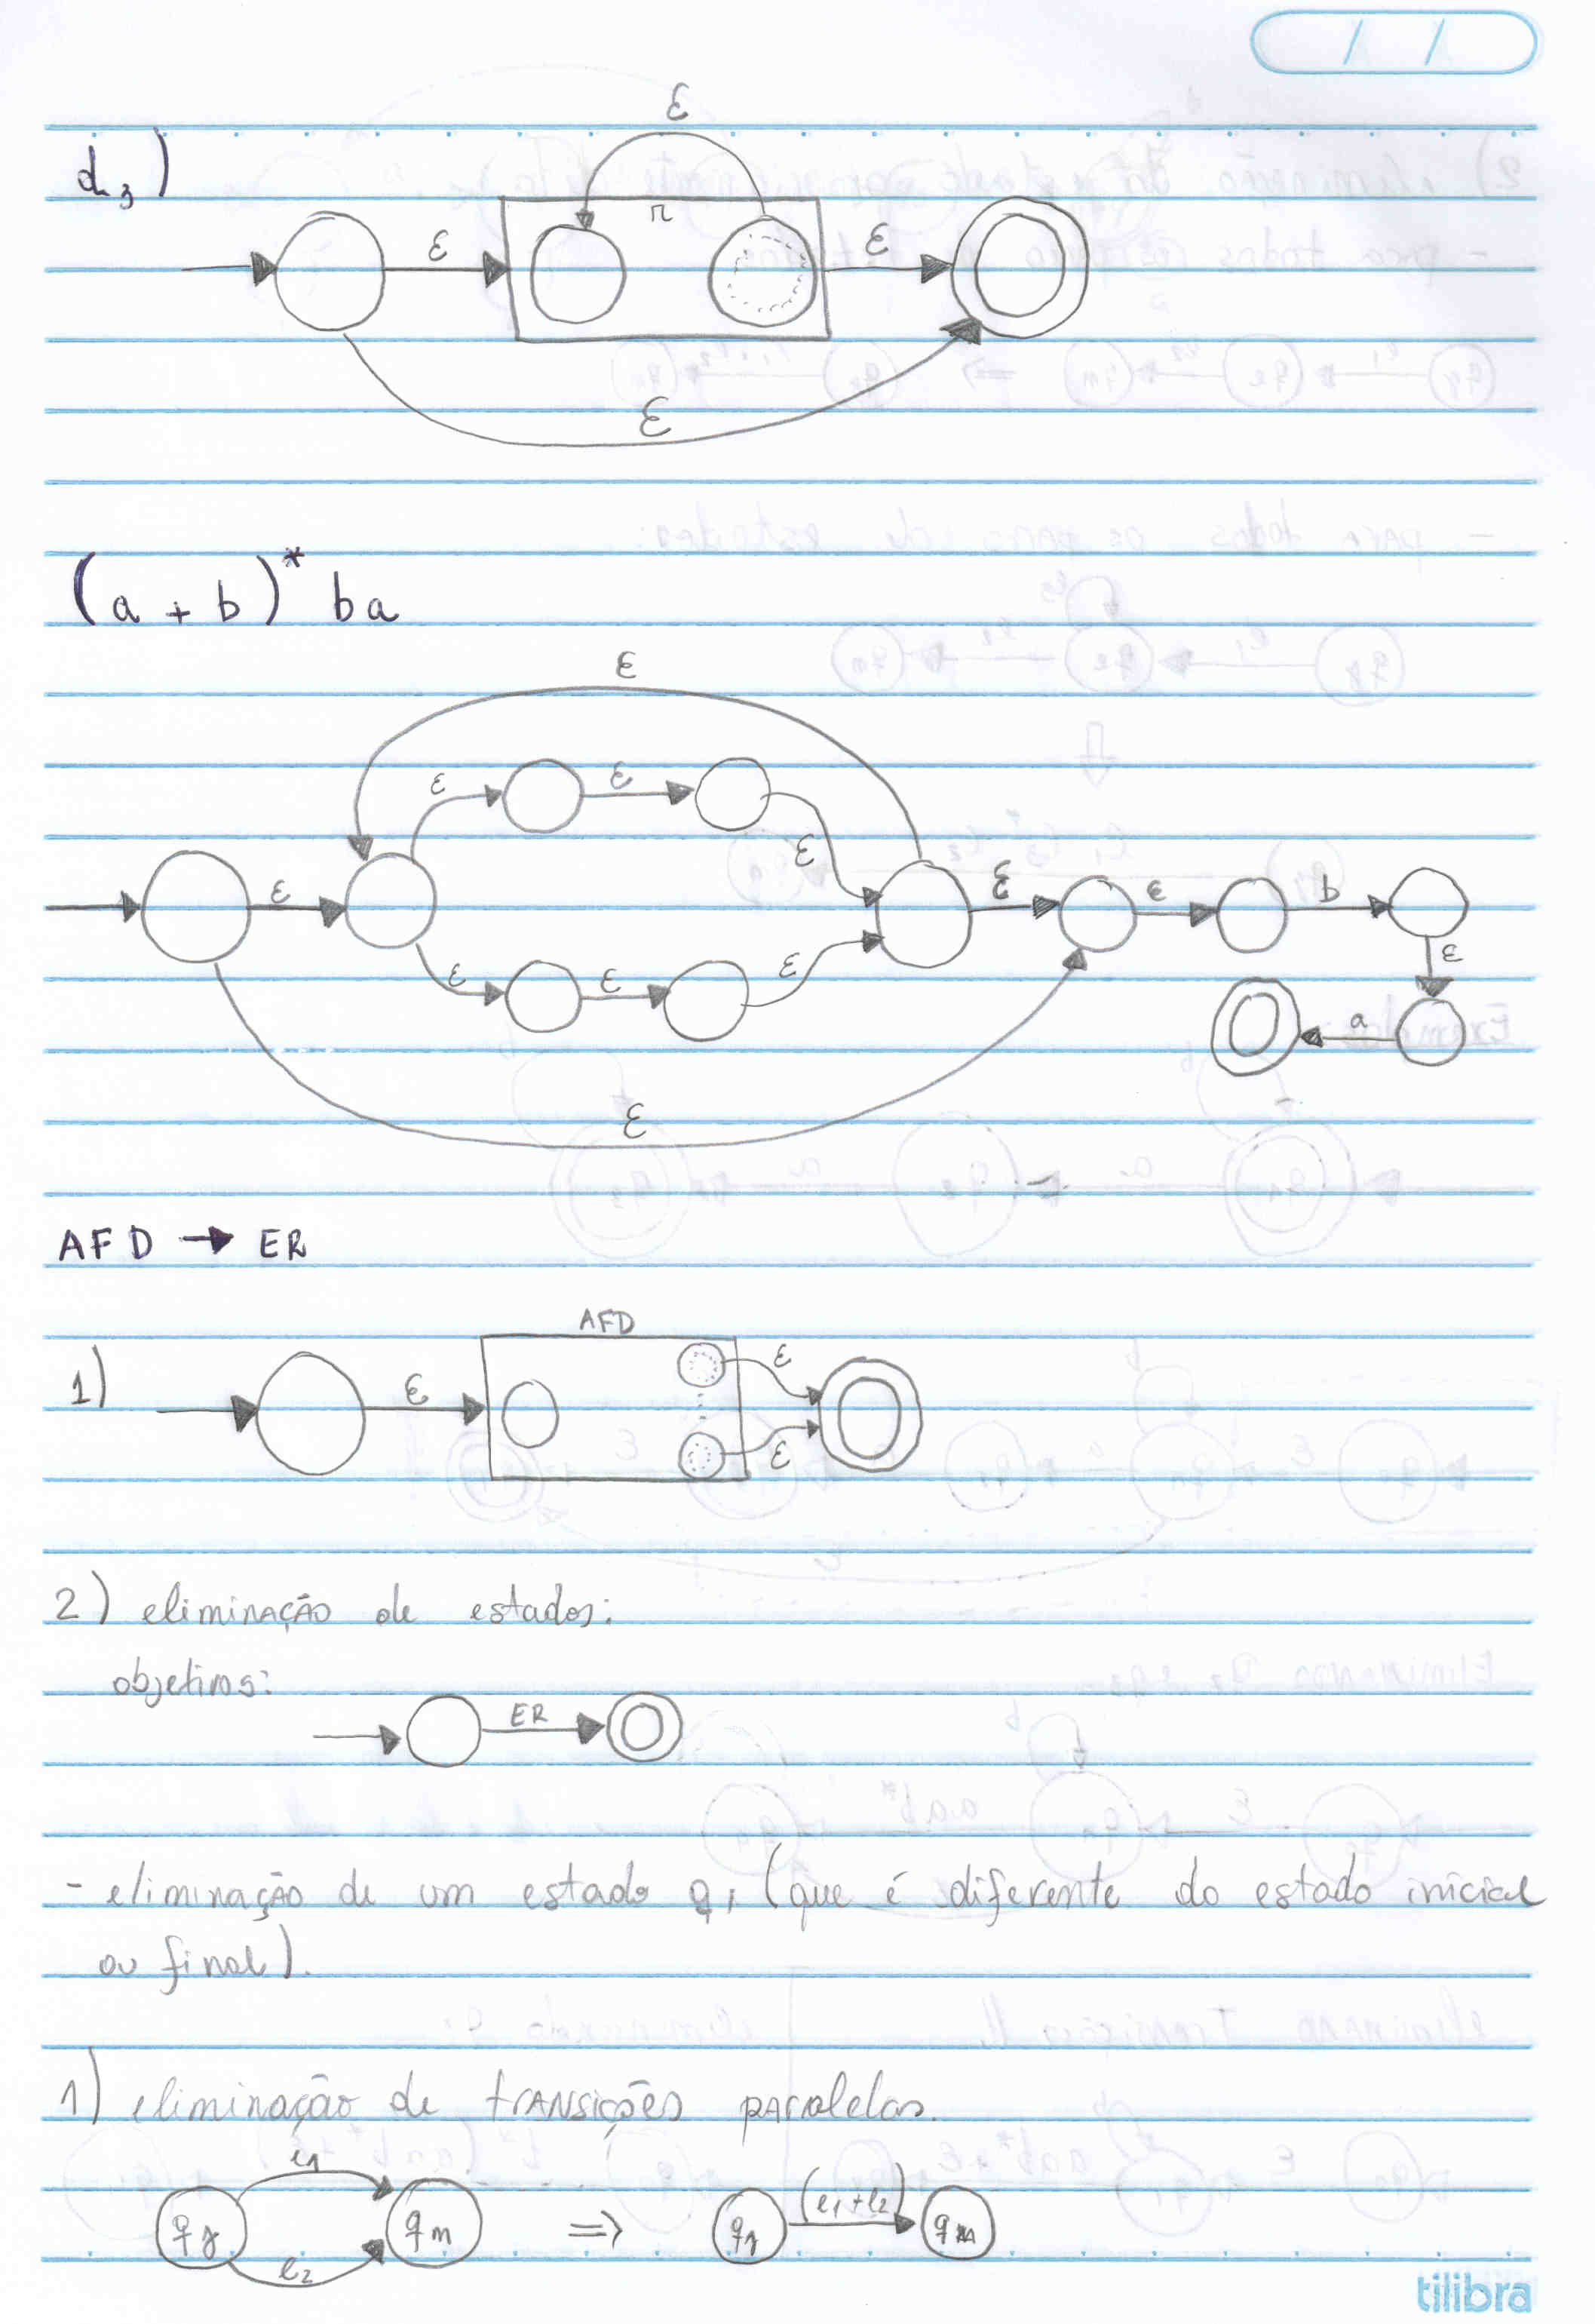 / /
ε
d₃)
r
ε
ε
ε
(a + b)* ba
ε
ε ε
ε
ε ε ε b
ε
ε ε ε
a
ε
AFD → ER
AFD
1) ε ε
ε
2) eliminação de estados:
objetivos:
ER
- eliminação de um estado q, (que é diferente do estado inicial
ou final).
1) eliminação de transições paralelas.
e1
qj qm ⇒ qj (e1+e2) qm
e2
tilibra